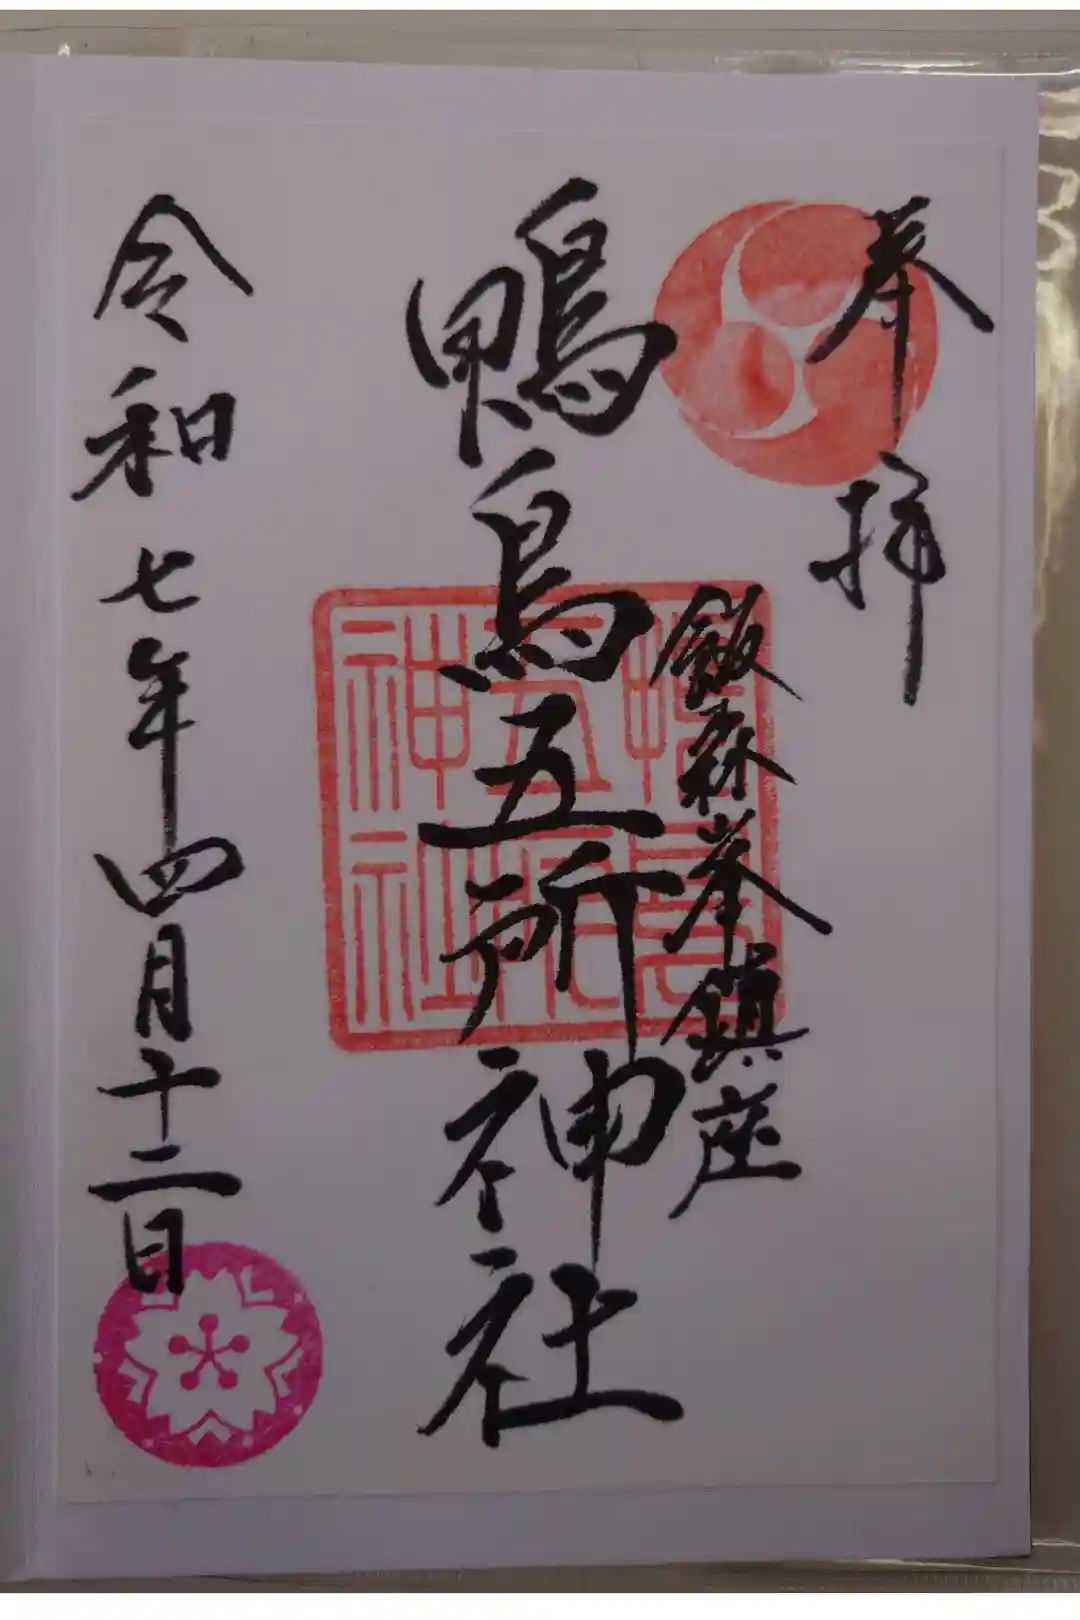 奉拝
飯森峯鎮座
鴨鳥五所神社
五所
神社
令和七年四月十二日